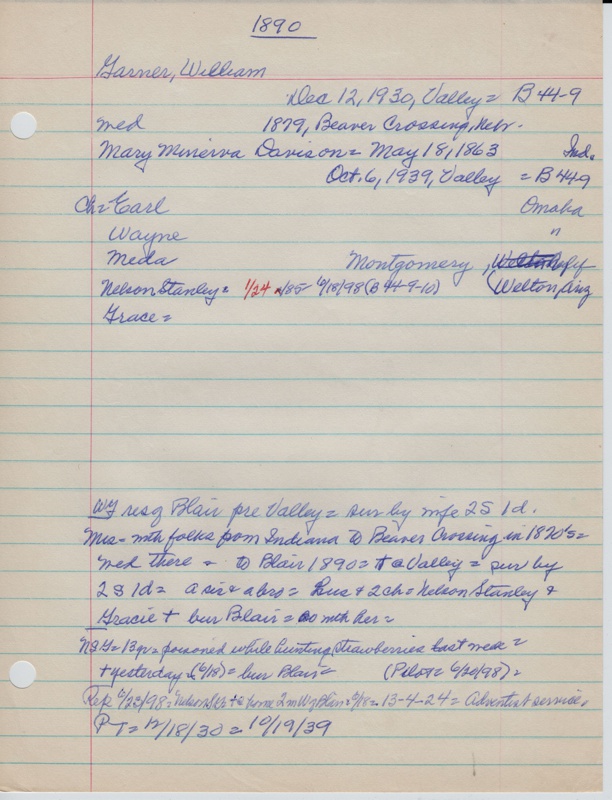 1890
Garner, William
Dec 12, 1930, Valley = B 44-9
Med 1879, Beaver Crossing, Nebr.
Mary Minerva Davison = May 18, 1863 Ind.
Oct. 6, 1939, Valley = B 44-9
Ch = Earl Omaha
Wayne "
Meda Montgomery,
Nelson Stanley = 1/24 /85 6/18/98 (B 44-9-10) (Welton, Ariz
Grace =
WG resq Blair pre Valley = sur by wife 2S 1d.
Mrs = mth folks from Indiana to Beaver Crossing in 1870's =
Med there = to Blair 1890 = + @ Valley = sur by
2S 1d = a sis & a bro = hus & 2ch = Nelson Stanley &
Gracie + bur Blair = so mth her =
NSG = 13yr = poisoned while hunting strawberries last week =
+ yesterday (6/18) = bur Blair = (Pilot = 6/20/98) =
Rep 6/23/98 = Nelson S. G. + @ home 2m W Blair = 6/18 = 13-4-24 = Adventist service.
PT = 12/18/30 = 10/19/39